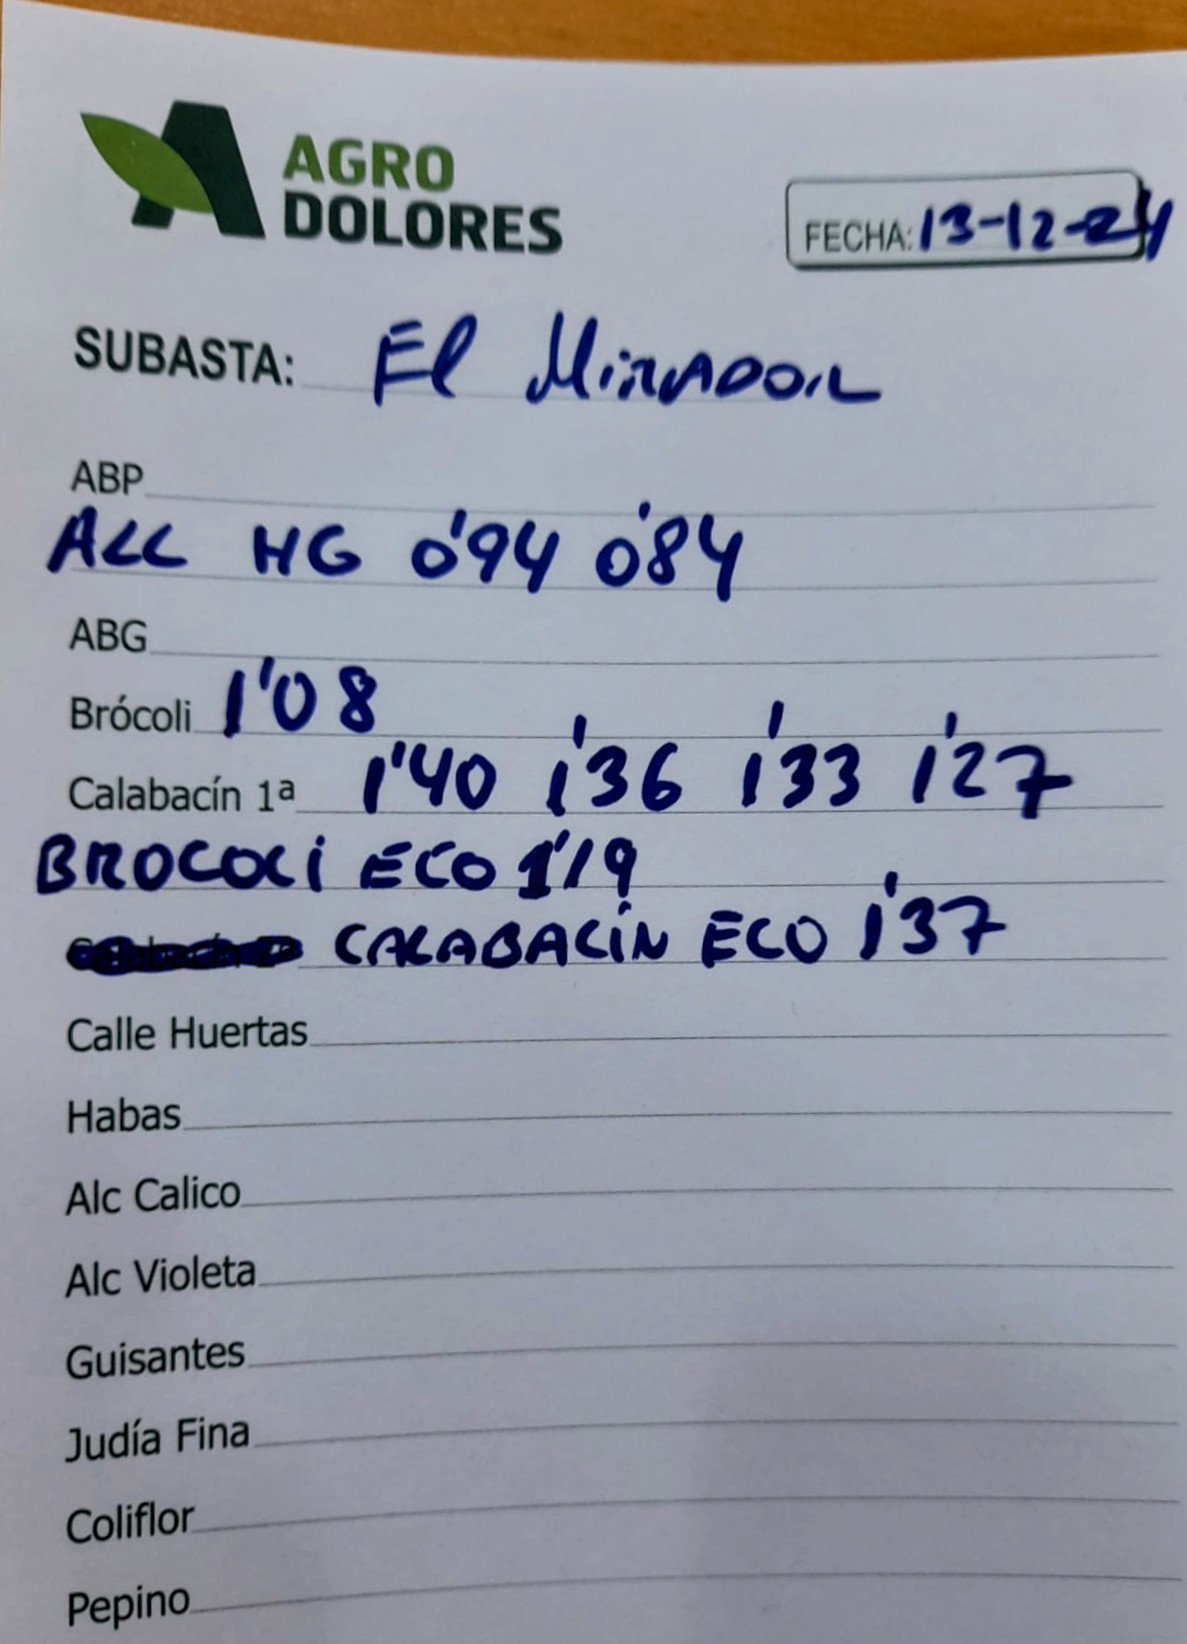 AGRO
DOLORES
FECHA: 13-12-24
SUBASTA: El MiRADOR
ABP
ALC HG 0'94 0'84
ABG
Brócoli 1'08
Calabacín 1ª 1'40 1'36 1'33 1'27
BROCOLI ECO 1'19
CALABACÍN ECO 1'37
Calle Huertas
Habas
Alc Calico
Alc Violeta
Guisantes
Judía Fina
Coliflor
Pepino